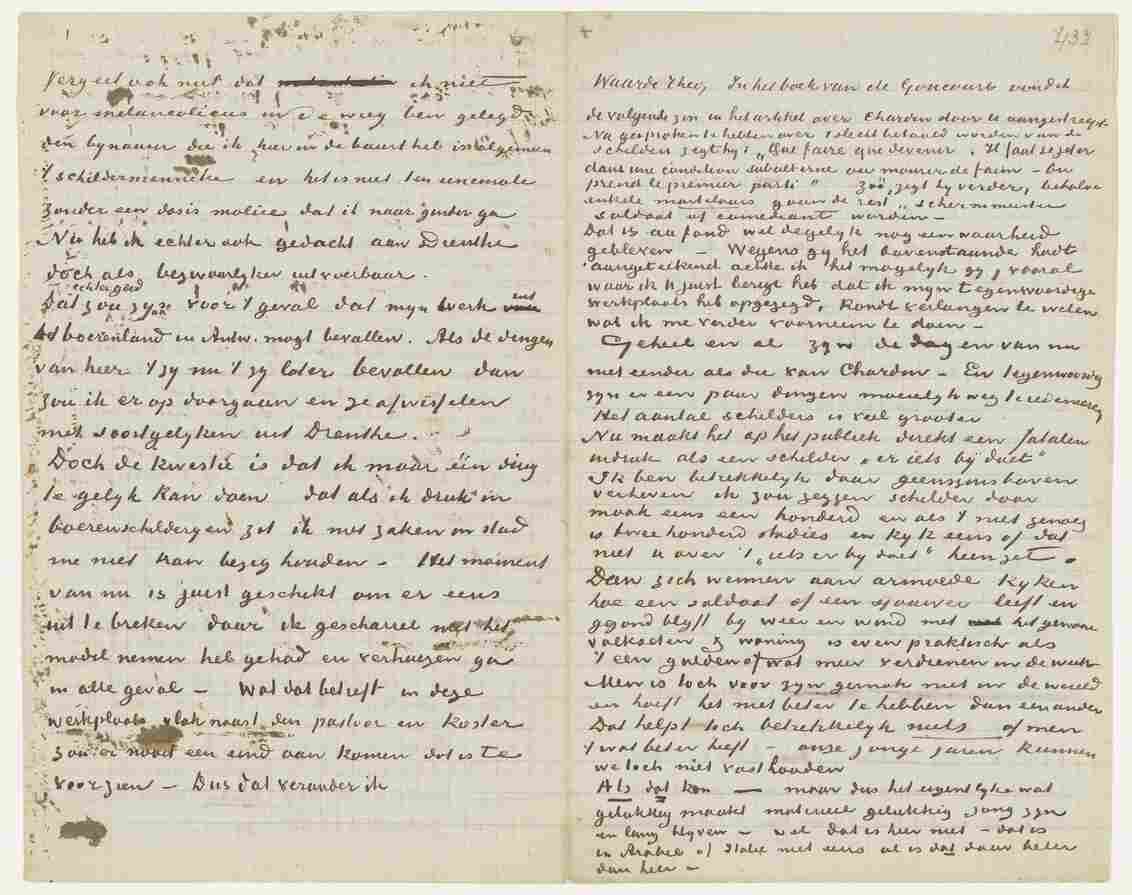 Vergeet ook niet dat ik niet
voor melancolicus in de weg ben gelegd
den bynaam die ik hier in de buurt heb is algemeen
't schildermenneke en het is niet ten eenemale
zonder een dosis malice dat ik naar ginder ga
Nu heb ik echter ook gedacht aan Drenthe
doch als bezwaarlyker uitvoerbaar.
Dat zou echter goed zyn voor 't geval dat myn werk uit
't boerenland in Antw. mogt bevallen. Als de dingen
van hier 't zy nu 't zy later bevallen dan
zou ik er op doorgaan en ze afwisselen
met soortgelyken uit Drenthe.
Doch de kwestie is dat ik maar één ding
te gelyk kan doen dat als ik druk in
boerenschilderyen zit ik met zaken in stad
me niet kan bezig houden – Het moment
van nu is juist geschikt om er eens
uit te breken daar ik gescharrel met het
model nemen heb gehad en verhuizen ga
in alle geval – Wat dat betreft in deze
werkplaats vlak naast den pastoor en koster
zou er nooit een eind aan komen dat is te
voorzien – Dus dat verander ik
433
Waarde Theo, In het boek van de Goncourt vond ik
de volgende zin in het artikel over Chardin door U aangestreept
Na gesproken te hebben over 't slecht betaald worden van de
schilders zegt hy: „Que faire que devenir. Il faut se jeter
dans une condition subalterne ou mourir de faim – On
prend le premier parti" Zoo, zegt hy verder, behalve
enkele martelaars gaan de rest „schermmeester
soldaat of comediant worden –
Dat is au fond wel degelyk nog een waarheid
gebleven – Wegens gy het bovenstaande hadt
aangeteekend achtte ik het mogelyk gy, vooral
waar ik U juist berigt heb dat ik myn tegenwoordige
werkplaats heb opgezegd, kondt verlangen te weten
wat ik me verder voorneem te doen –
Geheel en al zyn de dagen van nu
niet eender als die van Chardin – En tegenwoordig
zyn er een paar dingen moeielyk weg te redeneeren
Het aantal schilders is veel grooter
Nu maakt het op het publiek direkt een fatalen
indruk als een schilder „er iets by doet"
Ik ben betrekkelyk daar geenszins boven
verheven ik zou zeggen schilder door
maak eens een honderd en als 't niet genoeg
is twee honderd studies en kyk eens of dat
niet U over 't „iets er by doen" heen zet.
Dan zich wennen aan armoede kyken
hoe een soldaat of een sjouwer leeft en
gezond blyft by weer en wind met het gewone
volkseten & woning is even praktisch als
't een gulden of wat meer verdienen in de week
Men is toch voor zyn gemak niet in de wereld
en hoeft het niet beter te hebben dan een ander
Dat helpt toch betrekkelyk niets of men
't wat beter heeft – onze jonge jaren kunnen
we toch niet vasthouden
Als dat kon — maar dus het eigentlyke wat
gelukkig maakt materieel gelukkig jong zyn
en lang blyven – wel dat is hier niet – dat is
in Arabie of Italie niet eens al is dat daar beter
dan hier –